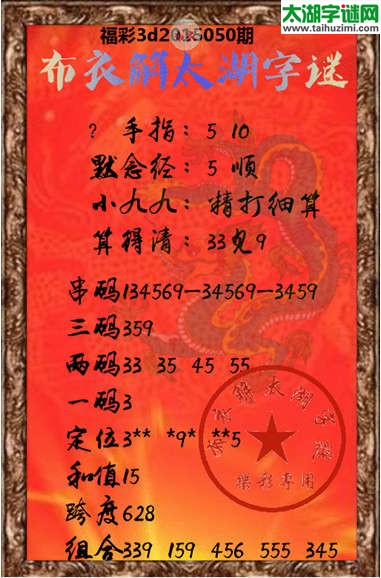 太湖字谜网
www.taihuzimi.com
福彩3d2015050期
布衣解太湖字谜
? 手指：5 10
默念经：5 顺
小九九：精打细算
算得清：33见9
串码134569-34569-3459
三码359
两码33 35 45 55
一码3
定位3** *9* **5
和值15
跨度628
组合339 159 456 555 345
布衣解太湖字谜
彩彩专用